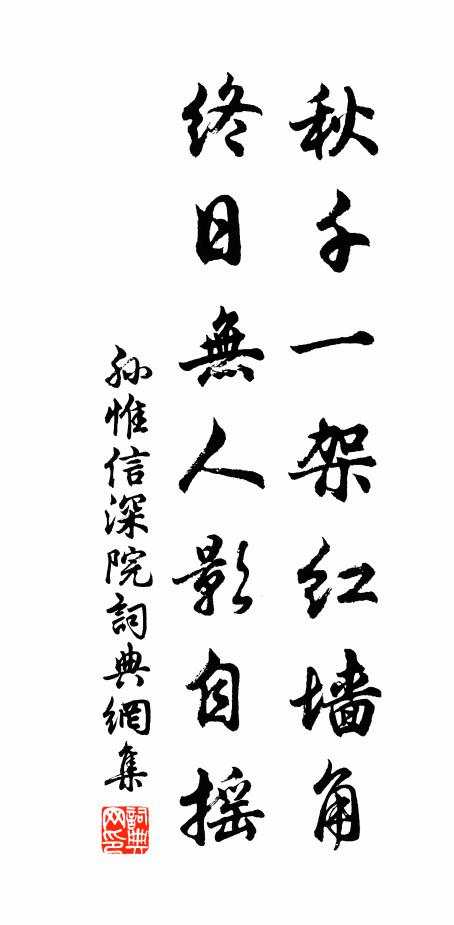 秋千一架红墙角
终日無人影自摇
孙惟信深院詞典網集
詞典网印